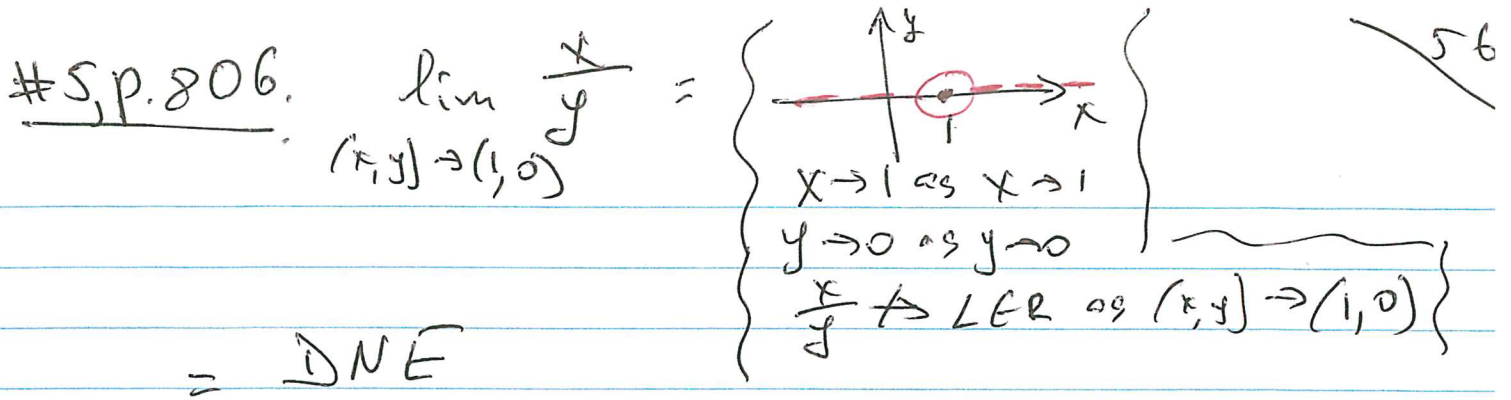 #5, p. 806. lim x/y =
(x,y)→(1,0)
y
x
1
56
x→1 as x→1
y→0 as y→0
x/y ↛ L∈R as (x,y)→(1,0)
= DNE